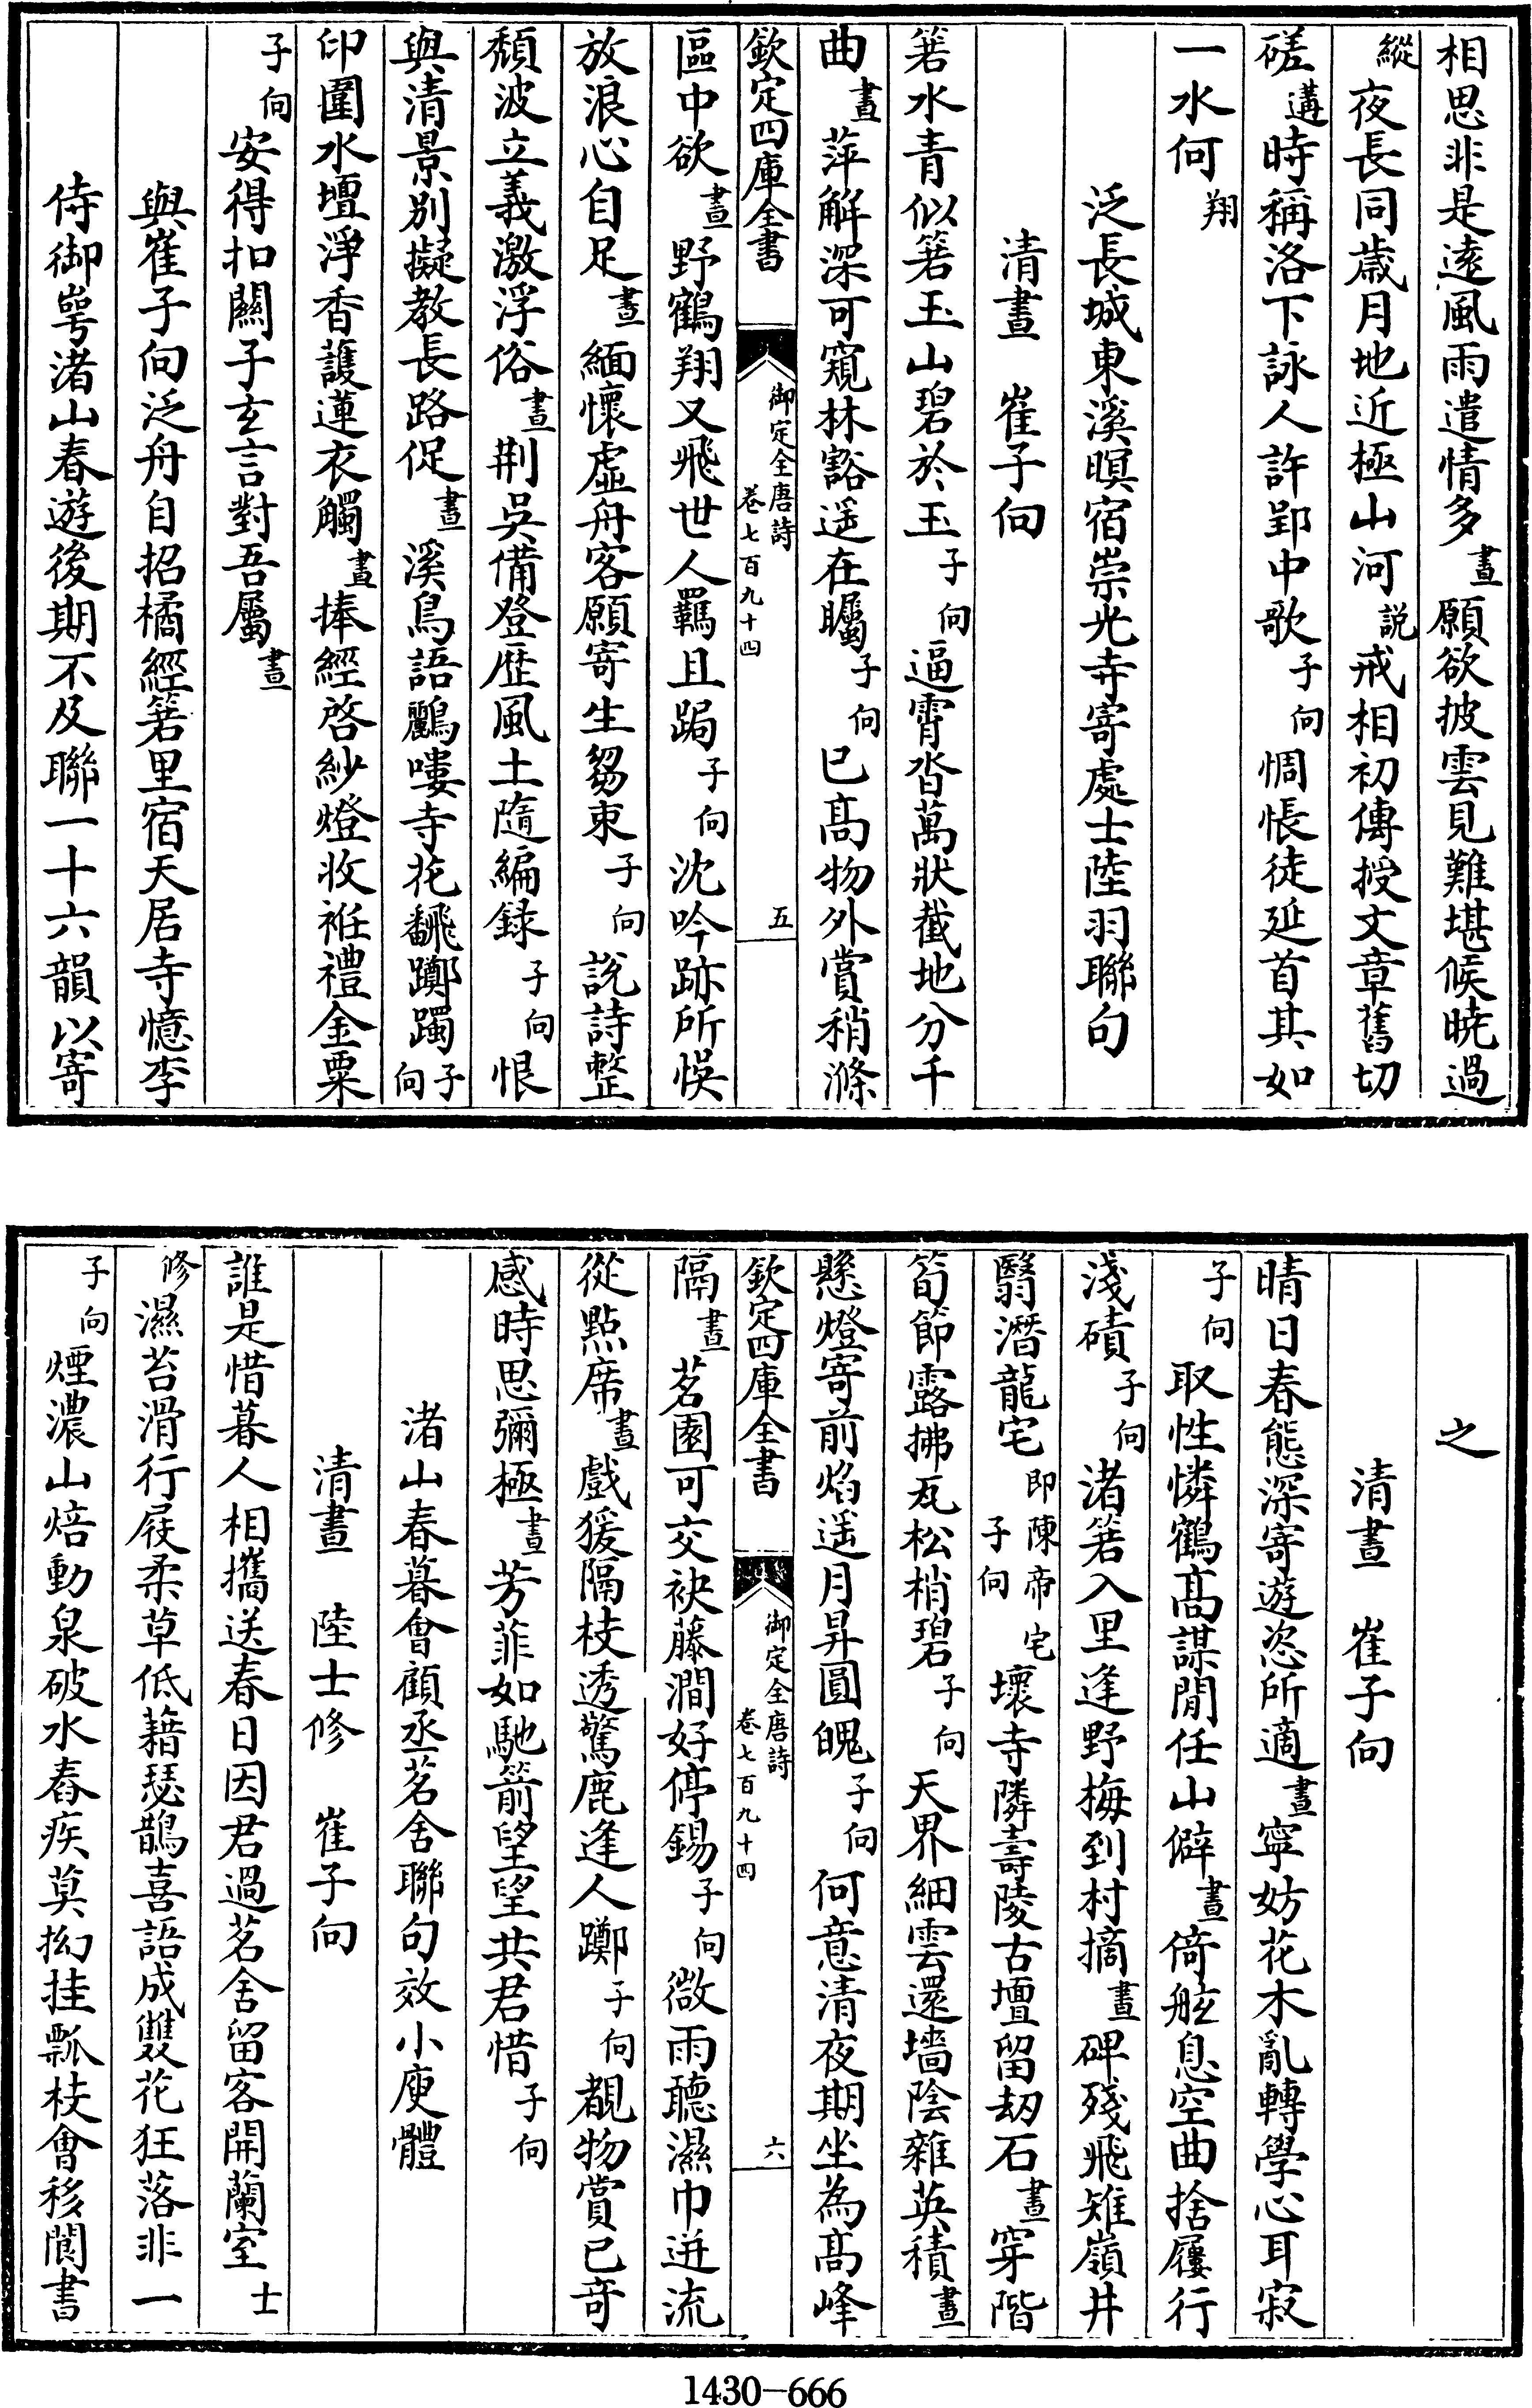 相思非是遠風雨遣情多晝願欲披雲見難堪候曉過
縱夜長同歲月地近極山河説戒相初傳授文章舊切
磋遘時稱洛下詠人許郢中歌子向惆悵徒延首其如
一水何翔
泛長城東溪暝宿崇光寺寄處士陸羽聯句
清晝　崔子向
箬水青似箬玉山碧於玉子向逼霄沓萬狀截地分千
曲晝萍解深可窺林豁遥在矚子向已髙物外賞稍滌
欽定四庫全書　御定全唐詩　卷七百九十四　五
區中欲晝野鶴翔又飛世人羈且跼子向沈吟跡所悞
放浪心自足晝緬懷虛舟客願寄生芻束子向説詩整
頽波立義激浮俗晝荆吳備登歴風土隨編録子向恨
與清景別擬教長路促晝溪鳥語鸝嘍寺花翻躑躅子向
印圍水壇淨香護蓮衣觸晝捧經啓紗燈收袵禮金粟
子向安得扣關子玄言對吾屬晝
與崔子向泛舟自招橘經箬里宿天居寺憶李
侍御崿渚山春遊後期不及聯一十六韻以寄
之
清晝　崔子向
晴日春態深寄遊恣所適晝寧妨花木亂轉學心耳寂
子向取性憐鶴髙謀閒任山僻晝倚舷息空曲捨屨行
淺磧子向渚箬入里逢野梅到村摘晝碑殘飛雉嶺井
翳潛龍宅即陳帝宅子向壞寺隣壽陵古壇留劫石晝穿階
筍節露拂瓦松梢碧子向天界細雲還墻陰雜英積晝
懸燈寄前焰遥月昇圓魄子向何意清夜期坐為髙峰
欽定四庫全書　御定全唐詩　卷七百九十四　六
隔晝茗園可交袂藤澗好停錫子向微雨聽濕巾迸流
從點席晝戲猨隔枝透驚鹿逢人躑子向覩物賞已奇
感時思彌極晝芳菲如馳箭望望共君惜子向
渚山春暮會顧丞茗舍聯句效小庾體
清晝　陸士修　崔子向
誰是惜暮人相攜送春日因君過茗舍留客開蘭室士
修濕苔滑行屐柔草低藉瑟鵲喜語成雙花狂落非一
子向煙濃山焙動泉破水舂疾莫拗挂瓢枝會移閒書
1430-666